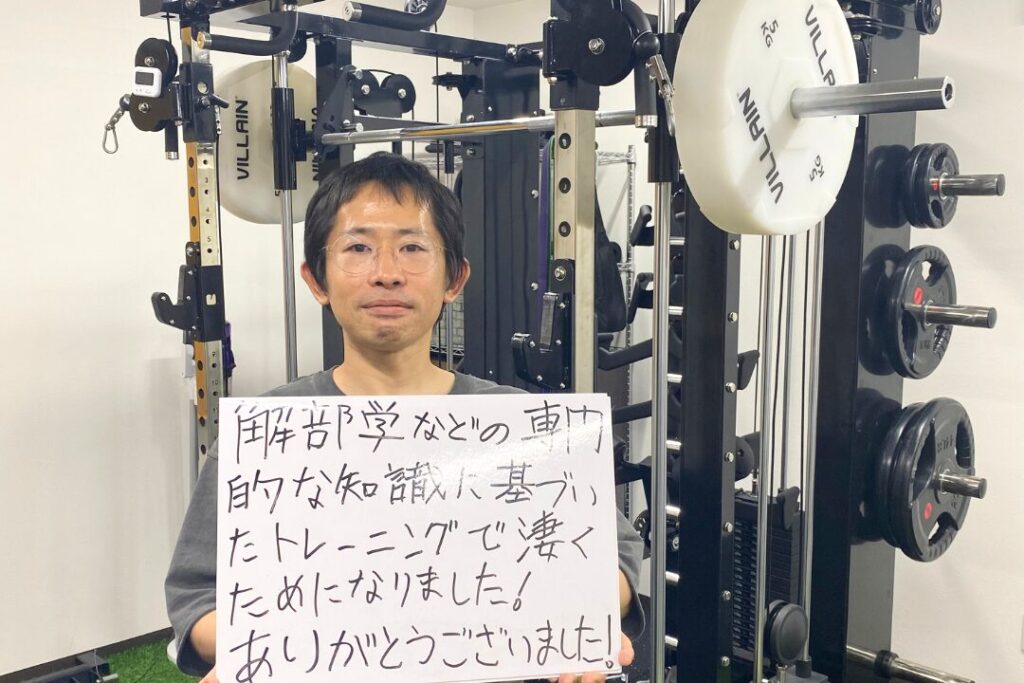 解部学などの専門
的な知識に基づい
たトレーニングで凄く
ためになりました!
ありがとうございました!
VILLAIN
VILLAIN
VILLAIN
5
KG
5
KG